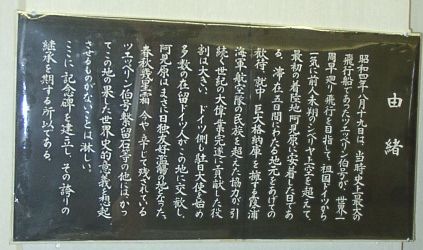 由緒
昭和四年八月十九日は、当時史上最大の
飛行船であったツェッペリン伯号が、世界一
周早廻り飛行を目指して、祖国ドイツから
一気に前人未翔のシベリヤ上空を超えて、
最初の着陸地阿見原に安着した日であ
る。滞在五日間にわたる地元をあげての
歓待、就中、巨大格納庫を擁する霞浦
海軍航空隊の民族を超えた協力が、引
続く世紀の大偉業完遂に貢献した役
割は大きい。ドイツ側も駐日大使を始め
多数の在留ドイツ人がこの地に交歓し、
阿見原はまさに日独友好濫觴の地となった。
春秋幾星霜、今や、辛じて残されている
ツェッペリン伯号繋留石等の他にはかつ
てこの地の果した世界史的意義を想起
させるものがないことは淋しい。
ここに、記念碑を建立し、その誇りの
継承を期する所以である。